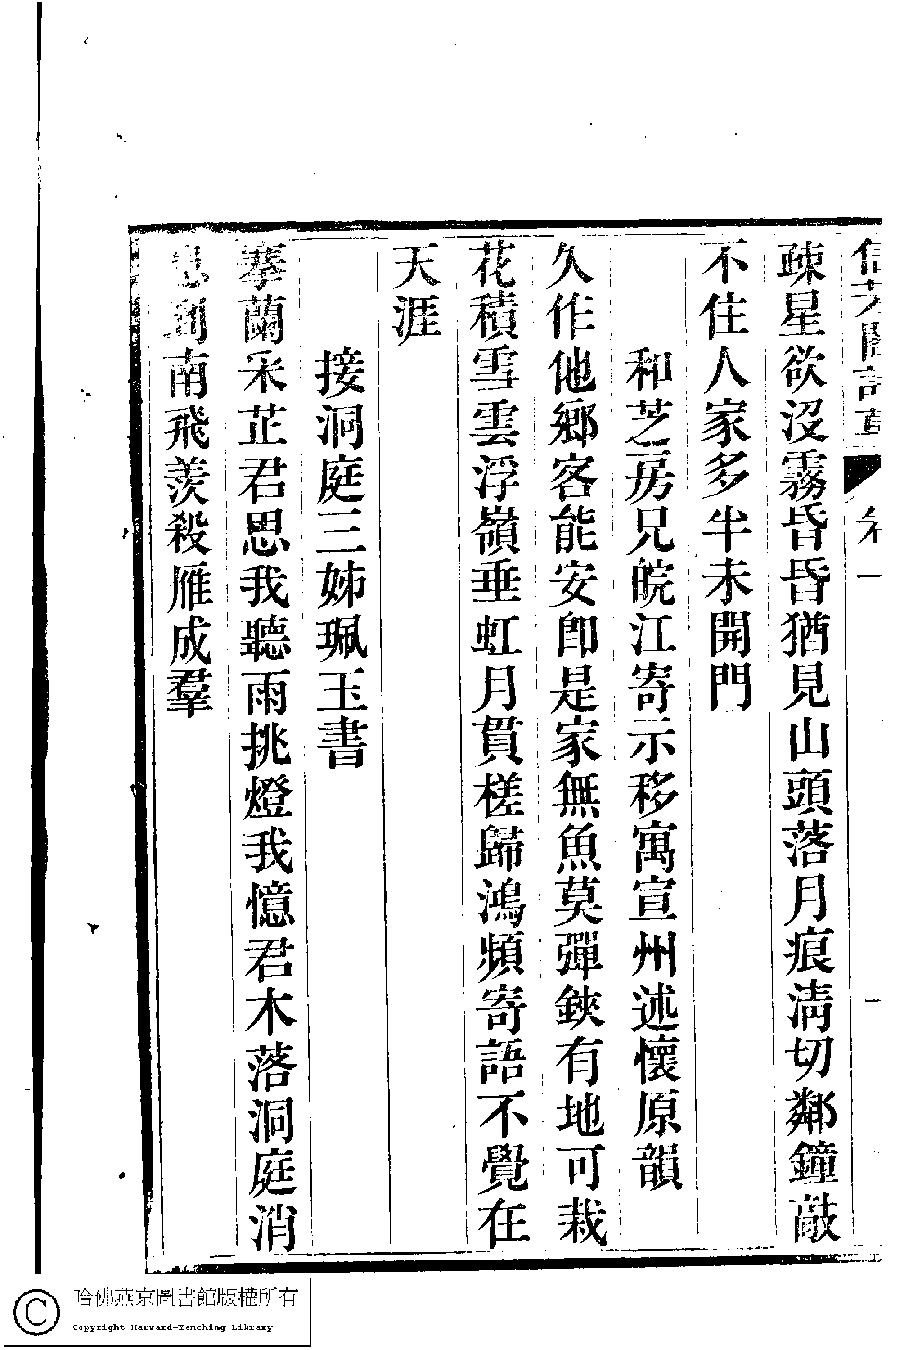 疎星欲沒霧昏昏猶見山頭落月痕淸切鄰鐘敲
不住人家多半未開門
和芝房兄皖江寄示移寓宣州述懷原韻
久作他鄉客能安卽是家無魚莫彈鋏有地可栽
花積雪雲浮嶺垂虹月貫槎歸鴻頻寄語不覺在
天涯
接洞庭三姊珮玉書
搴蘭采芷君思我聽雨挑燈我憶君木落洞庭消
息到南飛羨殺雁成羣
哈佛燕京圖書館版權所有
Copyright Harvard-Yenching Library